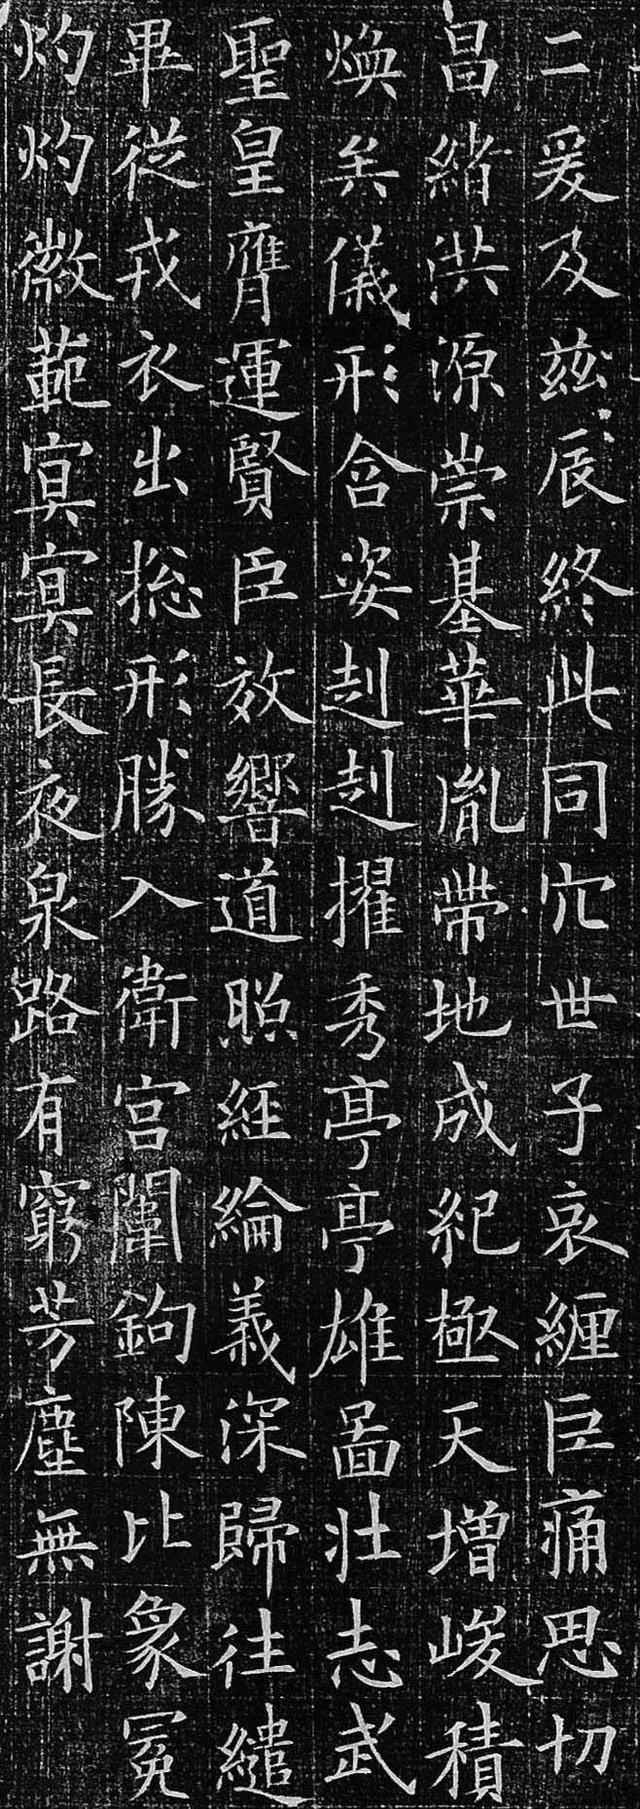 二爰及茲辰終此同穴世子哀纏巨痛思切
昌緒洪源崇基華胤帶地成紀極天增峻積
煥矣儀形含姿赳赳擢秀亭亭雄啚壯志武
聖皇膺運賢臣效響道照經綸義深歸往繾
畢從戎衣出揔形勝入衛宮闈鉤陳比象冕
灼灼徽範㝠㝠長夜泉路有窮芳塵無謝